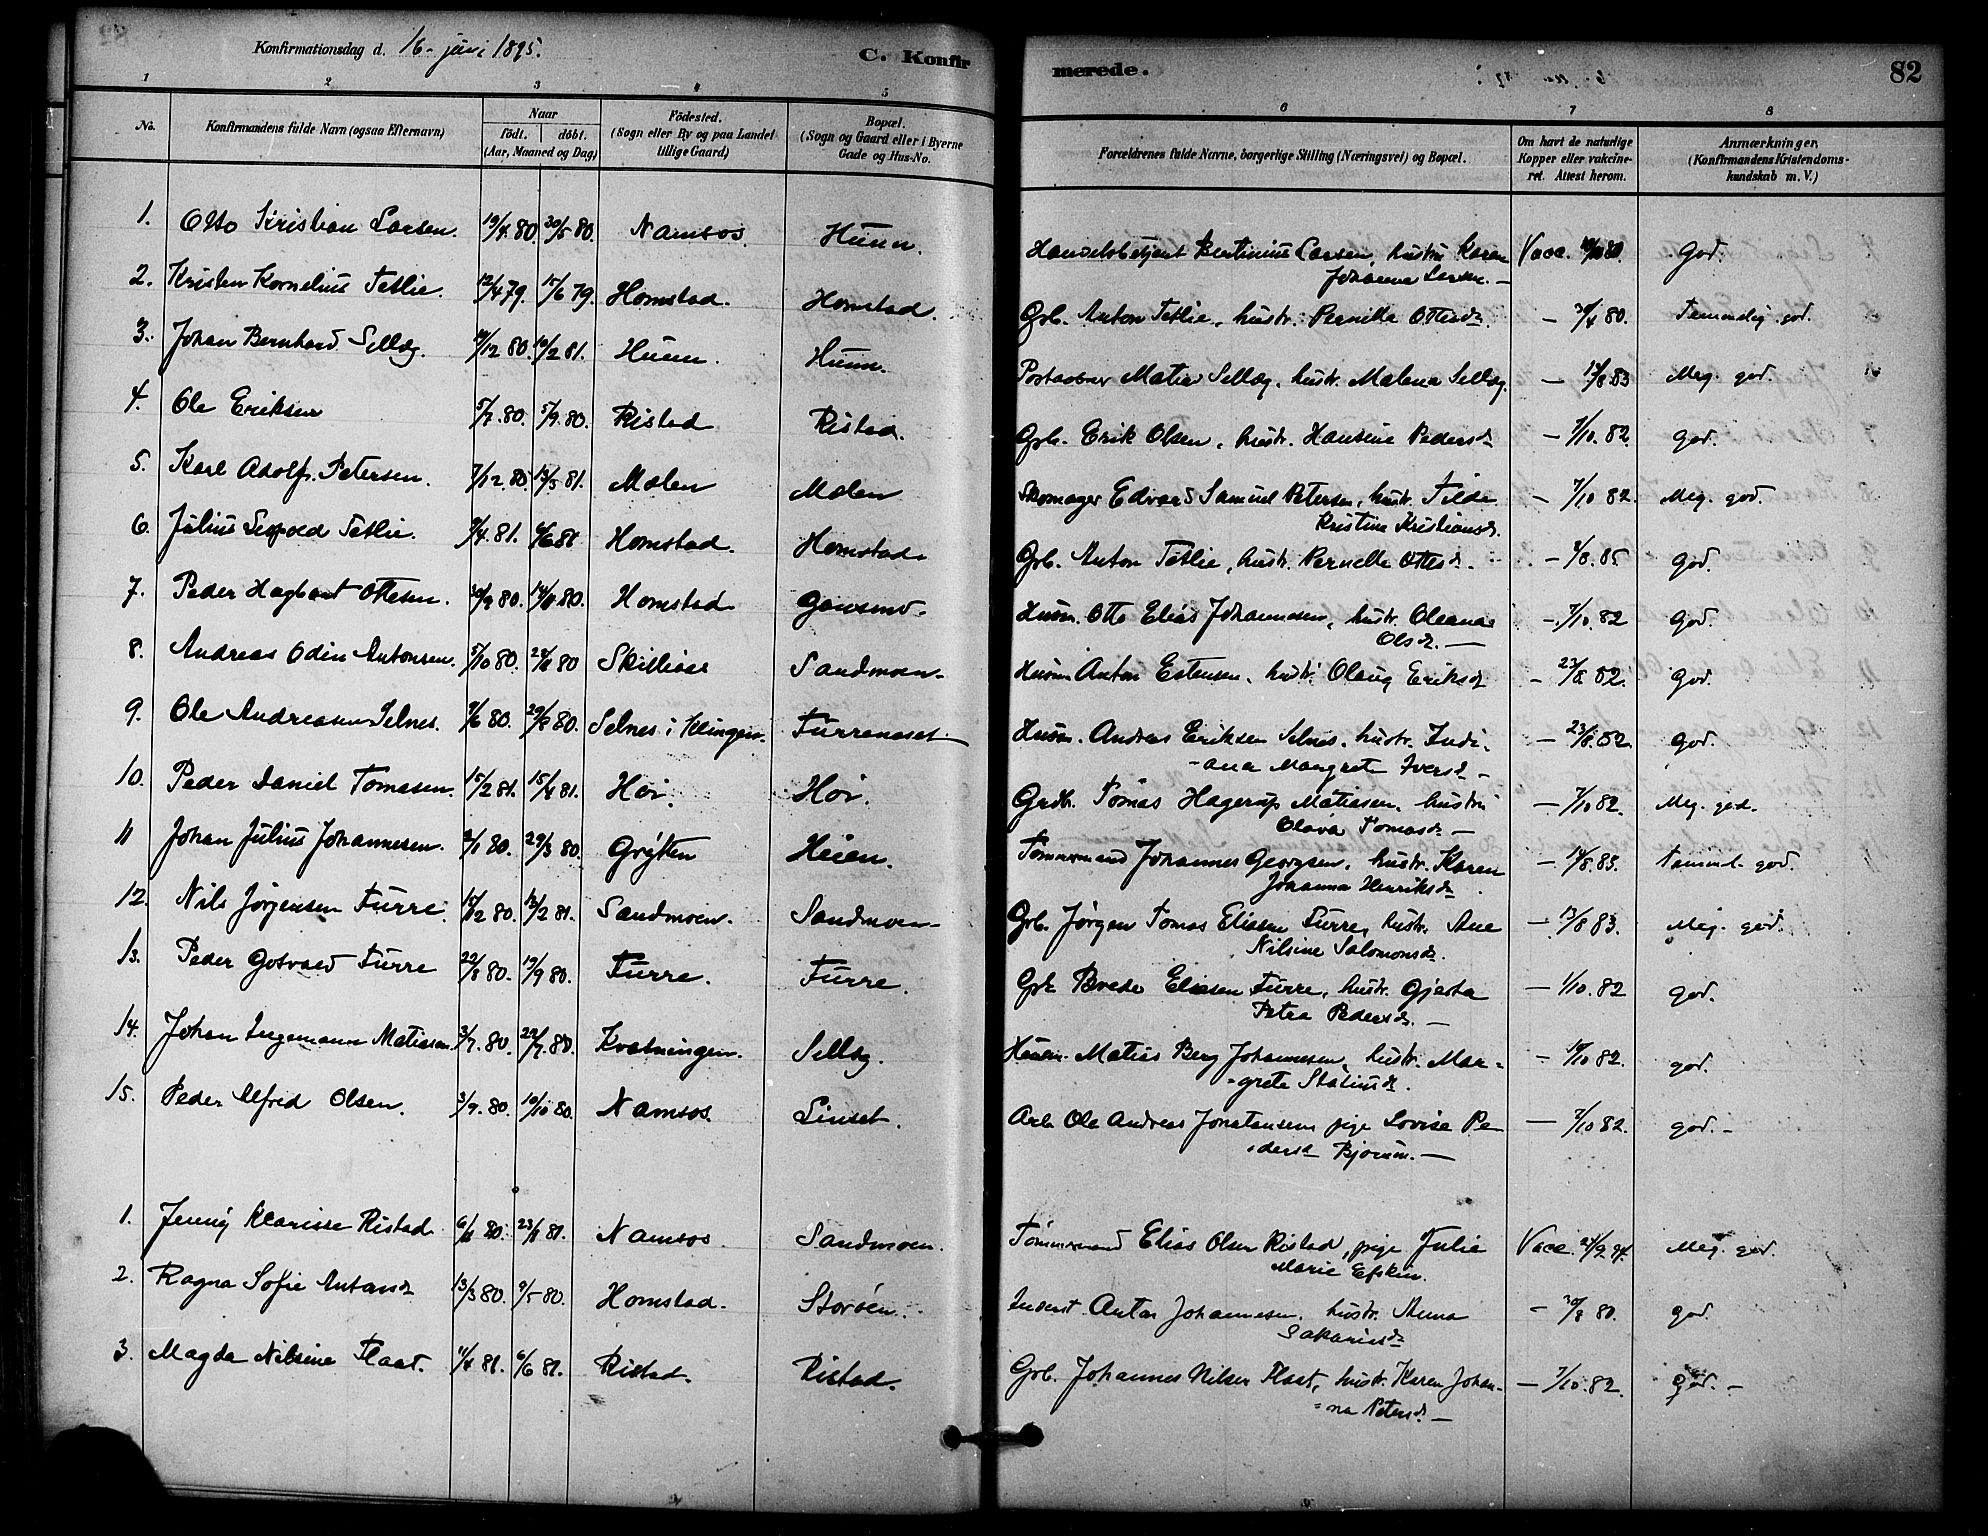 Konfirmationsdag d. 16- juni 1895.
C. Konfir
merede.
82
1 2 3 4 5 6 7 8
No.
Konfirmandens fulde Navn (ogsaa Efternavn)
Naar
født. | døbt.
(Aar, Maaned og Dag)
Fødested.
(Sogn eller By og paa Landet
tillige Gaard)
Bopæl.
(Sogn og Gaard eller i Byerne
Gade og Hus-No.
Forældrenes fulde Navne, borgerlige Stilling (Næringsvei) og Bopæl.
Om havt de naturlige
Kopper eller vakcine-
ret. Attest herom.
Anmærkninger.
(Konfirmandens Kristendoms-
kundskab m. V.)
1. Otto Kristian Larsen. 19/4.80. 30/5 80. Namsos. Hunn. Handelsbetjent Bertinius Larsen, hustru Karen Vacc. God.
Johanna Larsen. —
2. Kristen Kornelius Tetlie. 12/4 79. 15/6 79. Homstad. Homstad. Grb. Anton Tetlie, hustr. Pernilla Ottesd. — /4 80. Temmelig god.
3. Johan Bernhard Sellæg. /12 80. /2 81. Hunn. Hunn. Matias Sellæg, hustr. Malena Sellæg. — 14/8 83 Meg. god.
4. Ole Eriksen 5/7.80. 5/9.80. Ristad Ristad. Grb. Erik Olsen, hustr. Hansine Pedersd. — 7/10.82. god.
5. Karl Adolf Petersen. 7/12.80. 13/3 81. Molen Molen Skomager Edvard Samuel Petersen, hustr. Tilda — 7/10 82. Meg. god.
Kristine Kristiansd.
6. Julius Leopold Tetlie. 9/4.81. 6/6 81 Homstad. Homstad. Grb. Anton Tetlie, hustr. Pernella Ottesd. — /8.85 god.
7. Peder Hagbart Ottesen. 30/9 80. 14/11 80. Homstad Gansmo. Husm. Otto Elias Johannesen, hustr. Oleana — 7/10.82 god.
Olsd. —
8. Andreas Odin Antonsen. 5/10 80. /11 80 Sandmoen. Husm. Anton Estensen, hustr. Olaug Eriksd. — 23/8.82. god.
9. Ole Andreasen Selnes. 9/6 80. 29/8 80. Selnes i Klingen. Furreneset. Husm. Andreas Eriksen Selnes, hustr. Indi- — 23/8.82. god.
-ana Margrete Iversd. —
10. Peder Daniel Tomasen. 15/2 81. 15/4 81. Høi. Høi. Tomas Hagerup Matiasen, hustru — 7/10 82. Meg. god.
Olava Tomasd. —
11 Johan Julius Johannesen. 2/1 80. 29/3 80. Grøtten Heien. Tømmermand Johannes Georgsen, hustr. Karen — 14/8.83. temmel. god.
Johanna Henriksd.
12. Nils Jørgensen Furre. /12 80. 13/2 81. Sandmoen. Sandmoen. Grb. Jørgen Tomas Eliasen Furre, hustr. Ane — 13/8 83. Meg. god.
Nilsine Salomonsd.
13. Peder Gotvald Furre 22/8 80. 19/9 80. Furre. Furre. Brede Eliasen Furre, hustr. Gjerta — 1/10.82 god.
Petra Pedersd. —
14. Johan Ingemann Matiasen. 3/7.80. 22/7.80. Kvatningen. Sellæg. Husm. Matias Berg Johannesen, hustr. Mar- — /10 82. god.
-grete Statiusd.
15. Peder Alfred Olsen. 3/9.80. 10/10 80. Namsos. Linset. Arb. Ole Andreas Jonatansen, pige Lovise Pe- — 7/10 82. god. –
-dersd. Bjørum. —
1. Jenny Klarisse Ristad 6/11 80. 23/1 81. Namsos Sandmoen. Tømmermand Elias Olsen Ristad, pige Julie Vacc. 24/2 94. Meg. god.
Marie Efskin.
2. Ragna Sofie Antonsd. 13/3 80. 9/5 80. Homstad. Storøen. Inderst. Anton Johannesen, hustr. Anna — 30/8 80. god.
Sakariasd.
3. Magda Nilsine Flaat. 11/4 81. 6/6 81. Ristad. Ristad. Grb. Johannes Nilsen Flaat, hustr. Karen Johan- — 7/10.82. god. –
=na Petersd. —